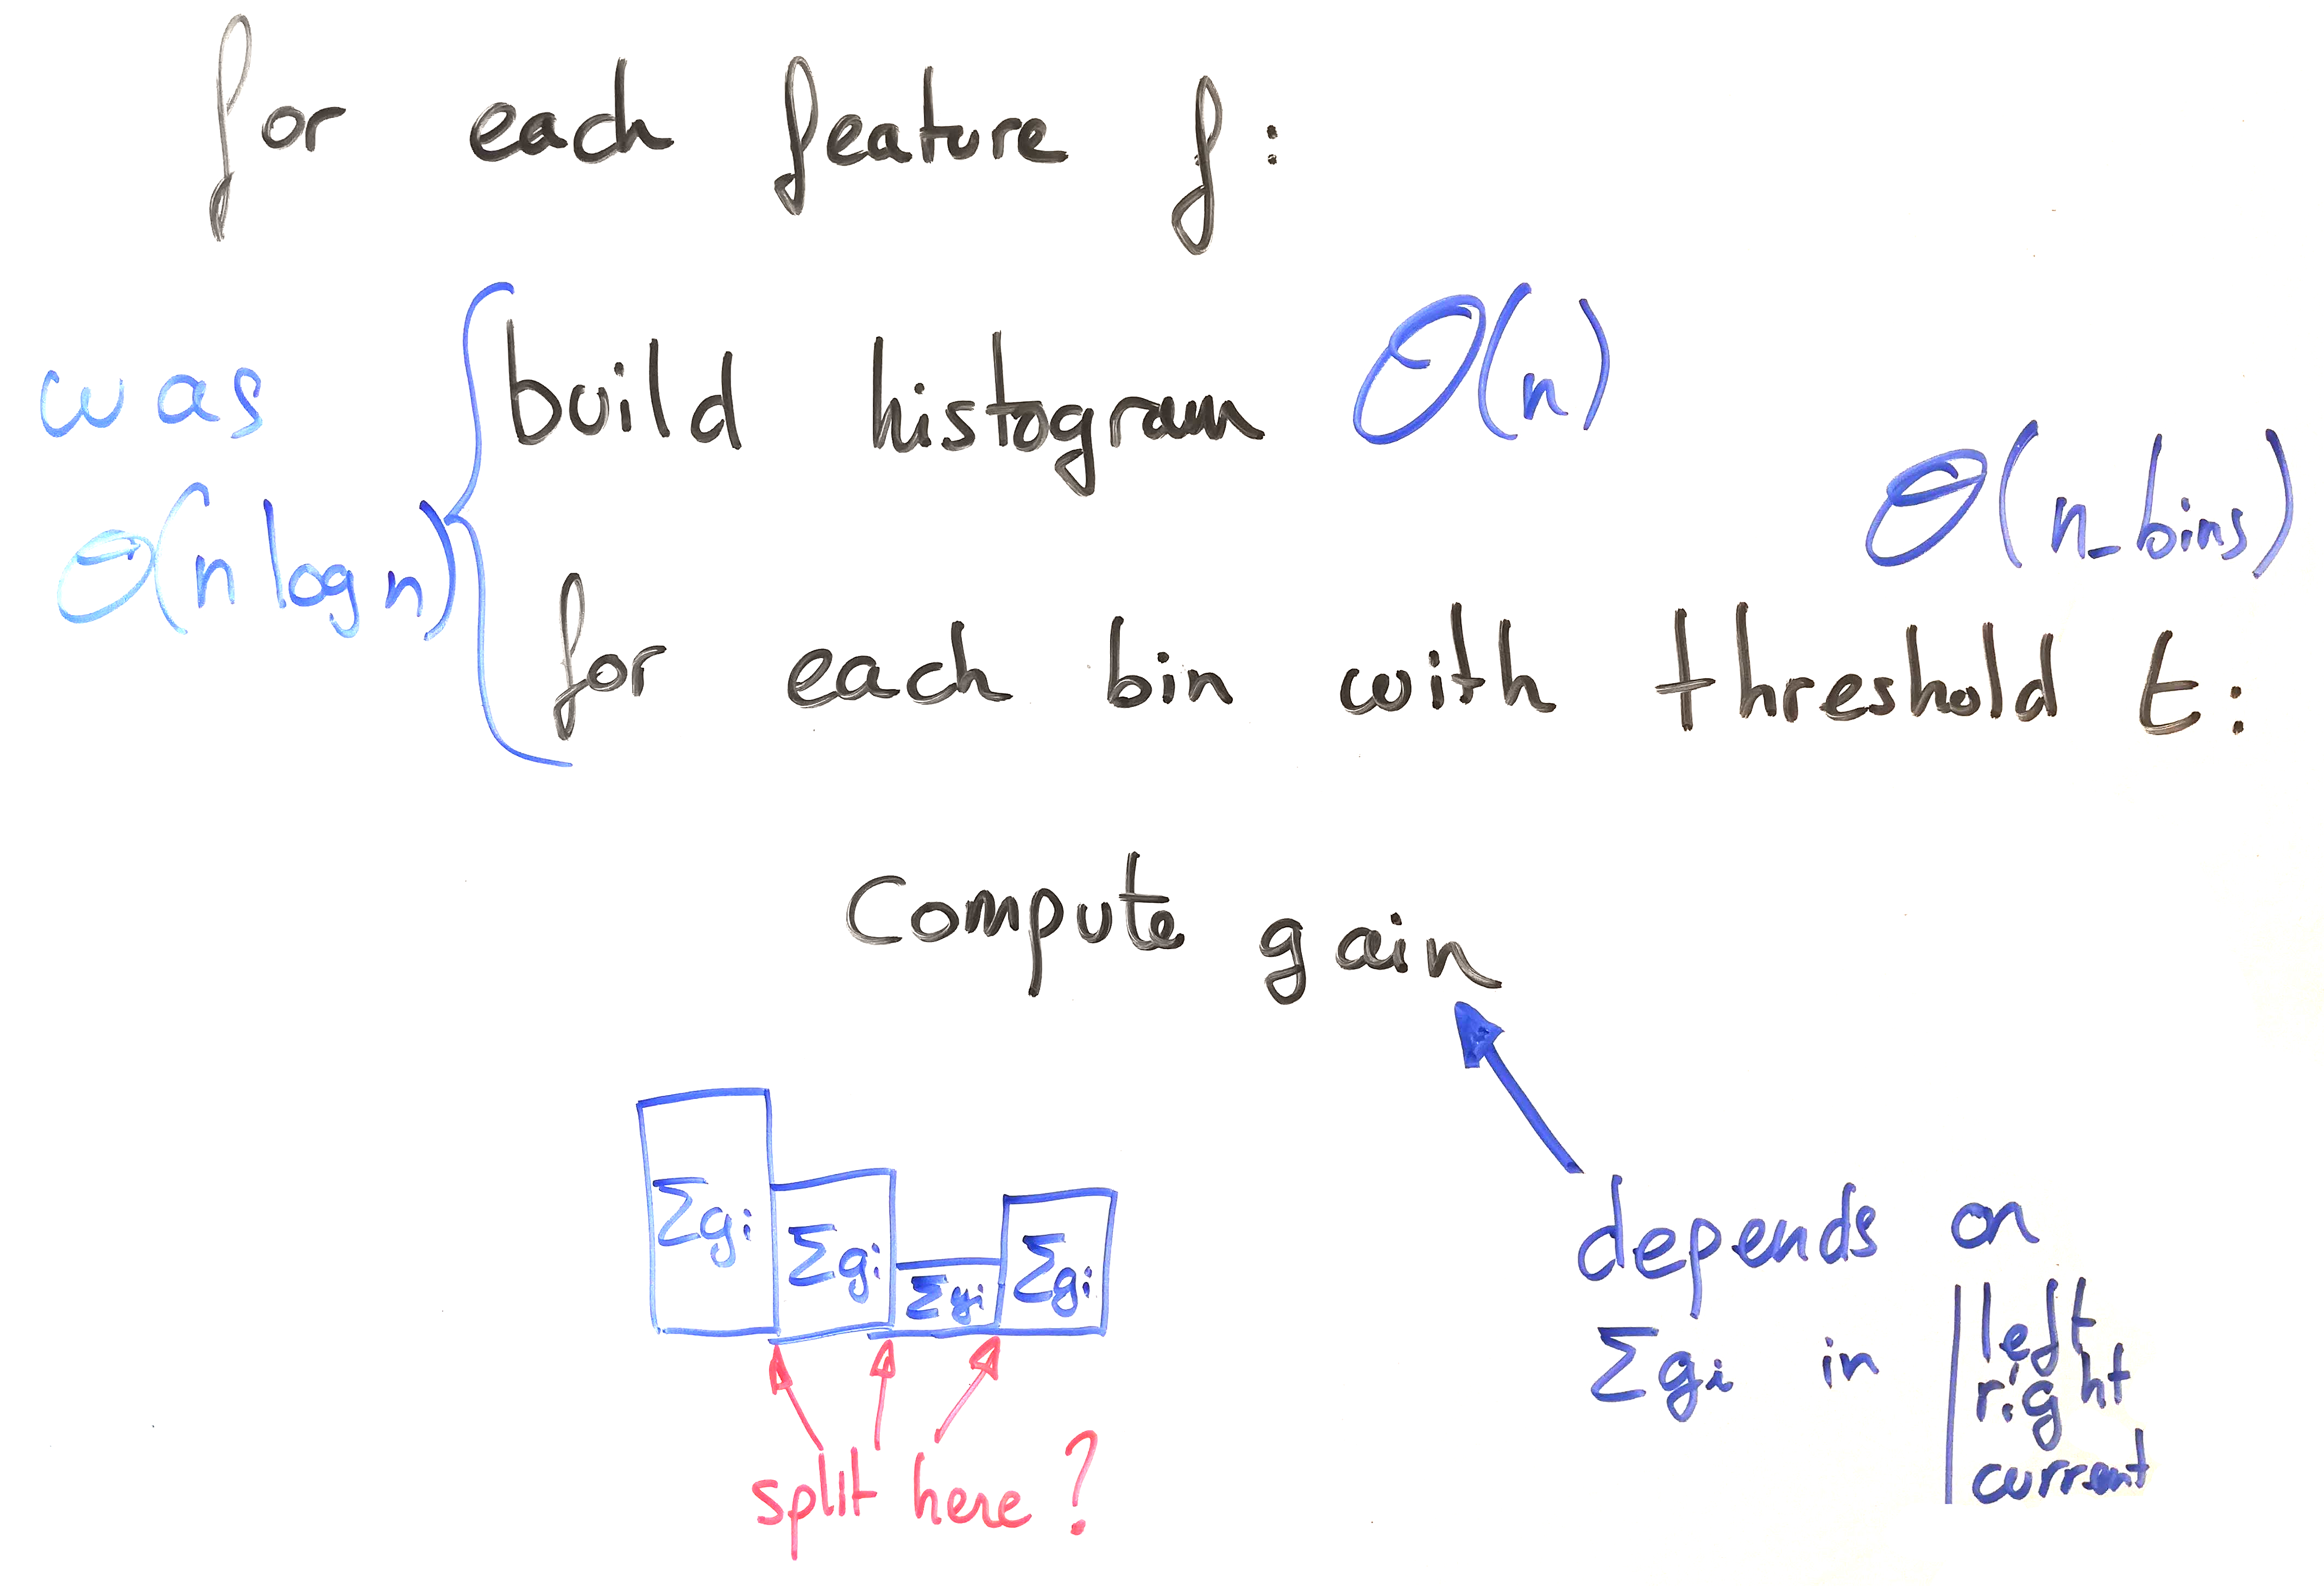 for each feature f:
was
O(n log n)
build histogram O(n)
O(n_bins)
for each bin with threshold t:
Compute gain
Σgi
Σgi
Σgi
Σgi
split here ?
depends on
Σgi in
left
right
current